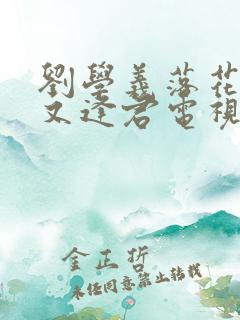 劉學義落花
又逢君電視
金正哲
未經同意禁止轉載